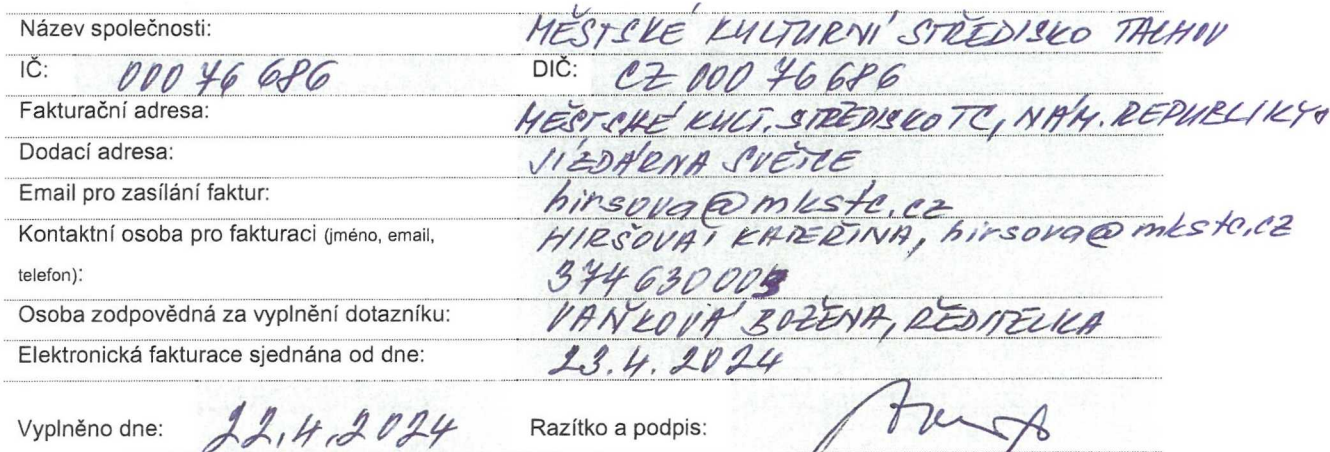 Název společnosti: MĚSTSKÉ KULTURNÍ STŘEDISKO TACHOV
IČ: 000 76 686 DIČ: CZ 000 76 686
Fakturační adresa: MĚSTSKÉ KULT. STŘEDISKO TC, NÁM. REPUBLIKY
Dodací adresa: JÍZDÁRNA SVĚTCE
Email pro zasílání faktur: hirsova@mkstc.cz
Kontaktní osoba pro fakturaci (jméno, email, HIRŠOVÁ KATEŘINA, hirsova@mkstc.cz
telefon): 374 630 005
Osoba zodpovědná za vyplnění dotazníku: VAŇKOVÁ BOŽENA, ŘEDITELKA
Elektronická fakturace sjednána od dne: 23.4.2024
Vyplněno dne: 22.4.2024 Razítko a podpis: